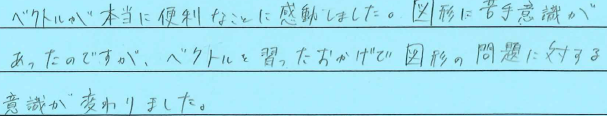 ベクトルが本当に便利なことに感動しました。図形に苦手意識が
あったのですが、ベクトルを習ったおかげで図形の問題に対する
意識が変わりました。